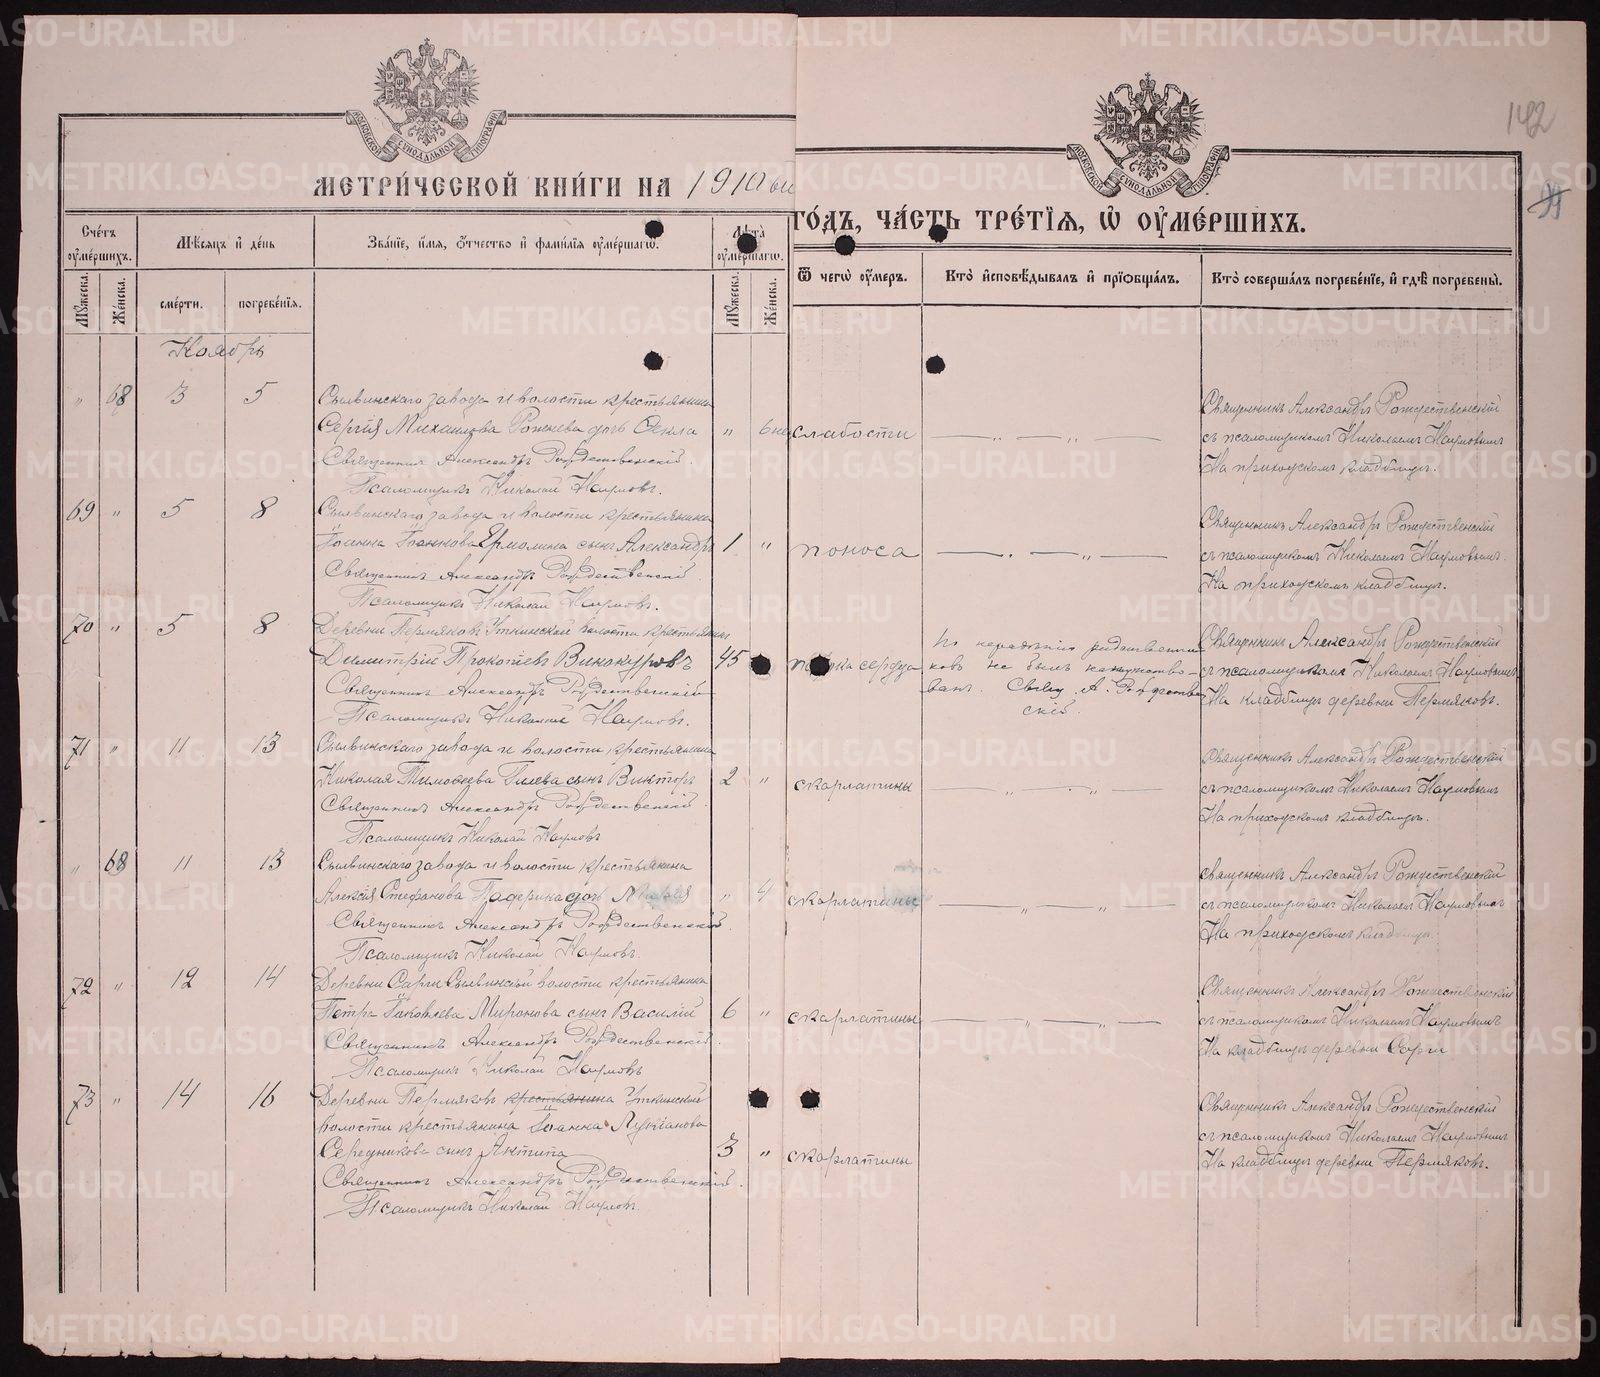 142
99
МЕТРИ́ЧЕСКОЙ КНИ́ГИ НА 1910ый
ГО́ДЪ, ЧА́СТЬ ТРЕ́ТІѦ, Ѡ ОУ҆МЕ́РШИХЪ.
Сче́тъ оу҆ме́ршихъ.
Мѣ́сѧцъ и҆ де́нь
Зва́нїе, и҆́мѧ, ѻ҆́тчество и҆ фами́лїѧ оу҆ме́ршагѡ.
Лѣ́та оу҆ме́ршагѡ.
Ѿ чегѡ̀ оу҆́меръ.
Кто̀ и҆сповѣ́дывалъ и҆ прїѡбща́лъ.
Кто̀ соверша́лъ погребе́нїе, и҆ гдѣ̀ погребены̀.
Мꙋ́жеска.
Же́нска.
сме́рти.
погребе́нїѧ.
Мꙋ́жеска.
Же́нска.
Ноябрь
" 68 3 5 Сылвинскаго завода и волости крестьянина
Сергія Михаилова Рожнева дочь Ѳекла " 6 нед слабости — „ — „ —
Священникъ Александръ Рождественскій.
Псаломщикъ Николай Наумовъ.
Священникъ Александръ Рождественскій
съ псаломщикомъ Николаемъ Наумовымъ
На приходскомъ кладбищѣ.
69 " 5 8 Сылвинскаго завода и волости крестьянина
Іоанна Іоаннова Ермолина сынъ Александръ 1 " поноса — „ — „ —
Священникъ Александръ Рождественскій
Псаломщикъ Николай Наумовъ.
Священникъ Александръ Рождественскій
съ псаломщикомъ Николаемъ Наумовымъ.
На приходскомъ кладбищѣ.
70 " 5 8 Деревни Пермяковъ Уткинской волости крестьянинъ
Димитрій Прокопьевъ Винокуровъ 45 сердца
Священникъ Александръ Рождественскій
Псаломщикъ Николай Наумовъ.
По нерадѣнію родственни-
ковъ не былъ напутство-
ванъ. Свящ. А. Рождествен-
скій.
Священникъ Александръ Рождественскій
съ псаломщикомъ Николаемъ Наумовымъ
На кладбищѣ деревни Пермяковъ.
71 " 11 13 Сылвинскаго завода и волости крестьянина
Николая Тимоѳеева Гилева сынъ Викторъ 2 " скарлатины — „ — „ —
Священникъ Александръ Рождественскій
Псаломщикъ Николай Наумовъ
Священникъ Александръ Рождественскій
съ псаломщикомъ Николаемъ Наумовымъ
На приходскомъ кладбищѣ.
" 68 11 13 Сылвинскаго завода и волости крестьянина
Алексія Стефанова Падерина дочь " 4 скарлатины — „ — „ —
Священникъ Александръ Рождественскій.
Псаломщикъ Николай Наумовъ.
Священникъ Александръ Рождественскій
съ псаломщикомъ Николаемъ Наумовымъ
На приходскомъ кладбищѣ.
72 " 12 14 Деревни Сарги Сылвинской волости крестьянина
Петра Іаковлева Миронова сынъ Василій 6 " скарлатины — „ — „ —
Священникъ Александръ Рождественскій.
Псаломщикъ Николай Наумовъ
Священникъ Александръ Рождественскій
съ псаломщикомъ Николаемъ Наумовымъ
На кладбищѣ деревни Сарги
73 " 14 16 Деревни Пермяковъ крестьянина Уткинской
волости крестьянина Іоанна Лукіанова
Середникова сынъ Антипа 3 " скарлатины
Священникъ Александръ Рождественскій.
Псаломщикъ Николай Наумовъ.
Священникъ Александръ Рождественскій
съ псаломщикомъ Николаемъ Наумовымъ
На кладбищѣ деревни Пермяковъ.
METRIKI.GASO-URAL.RU